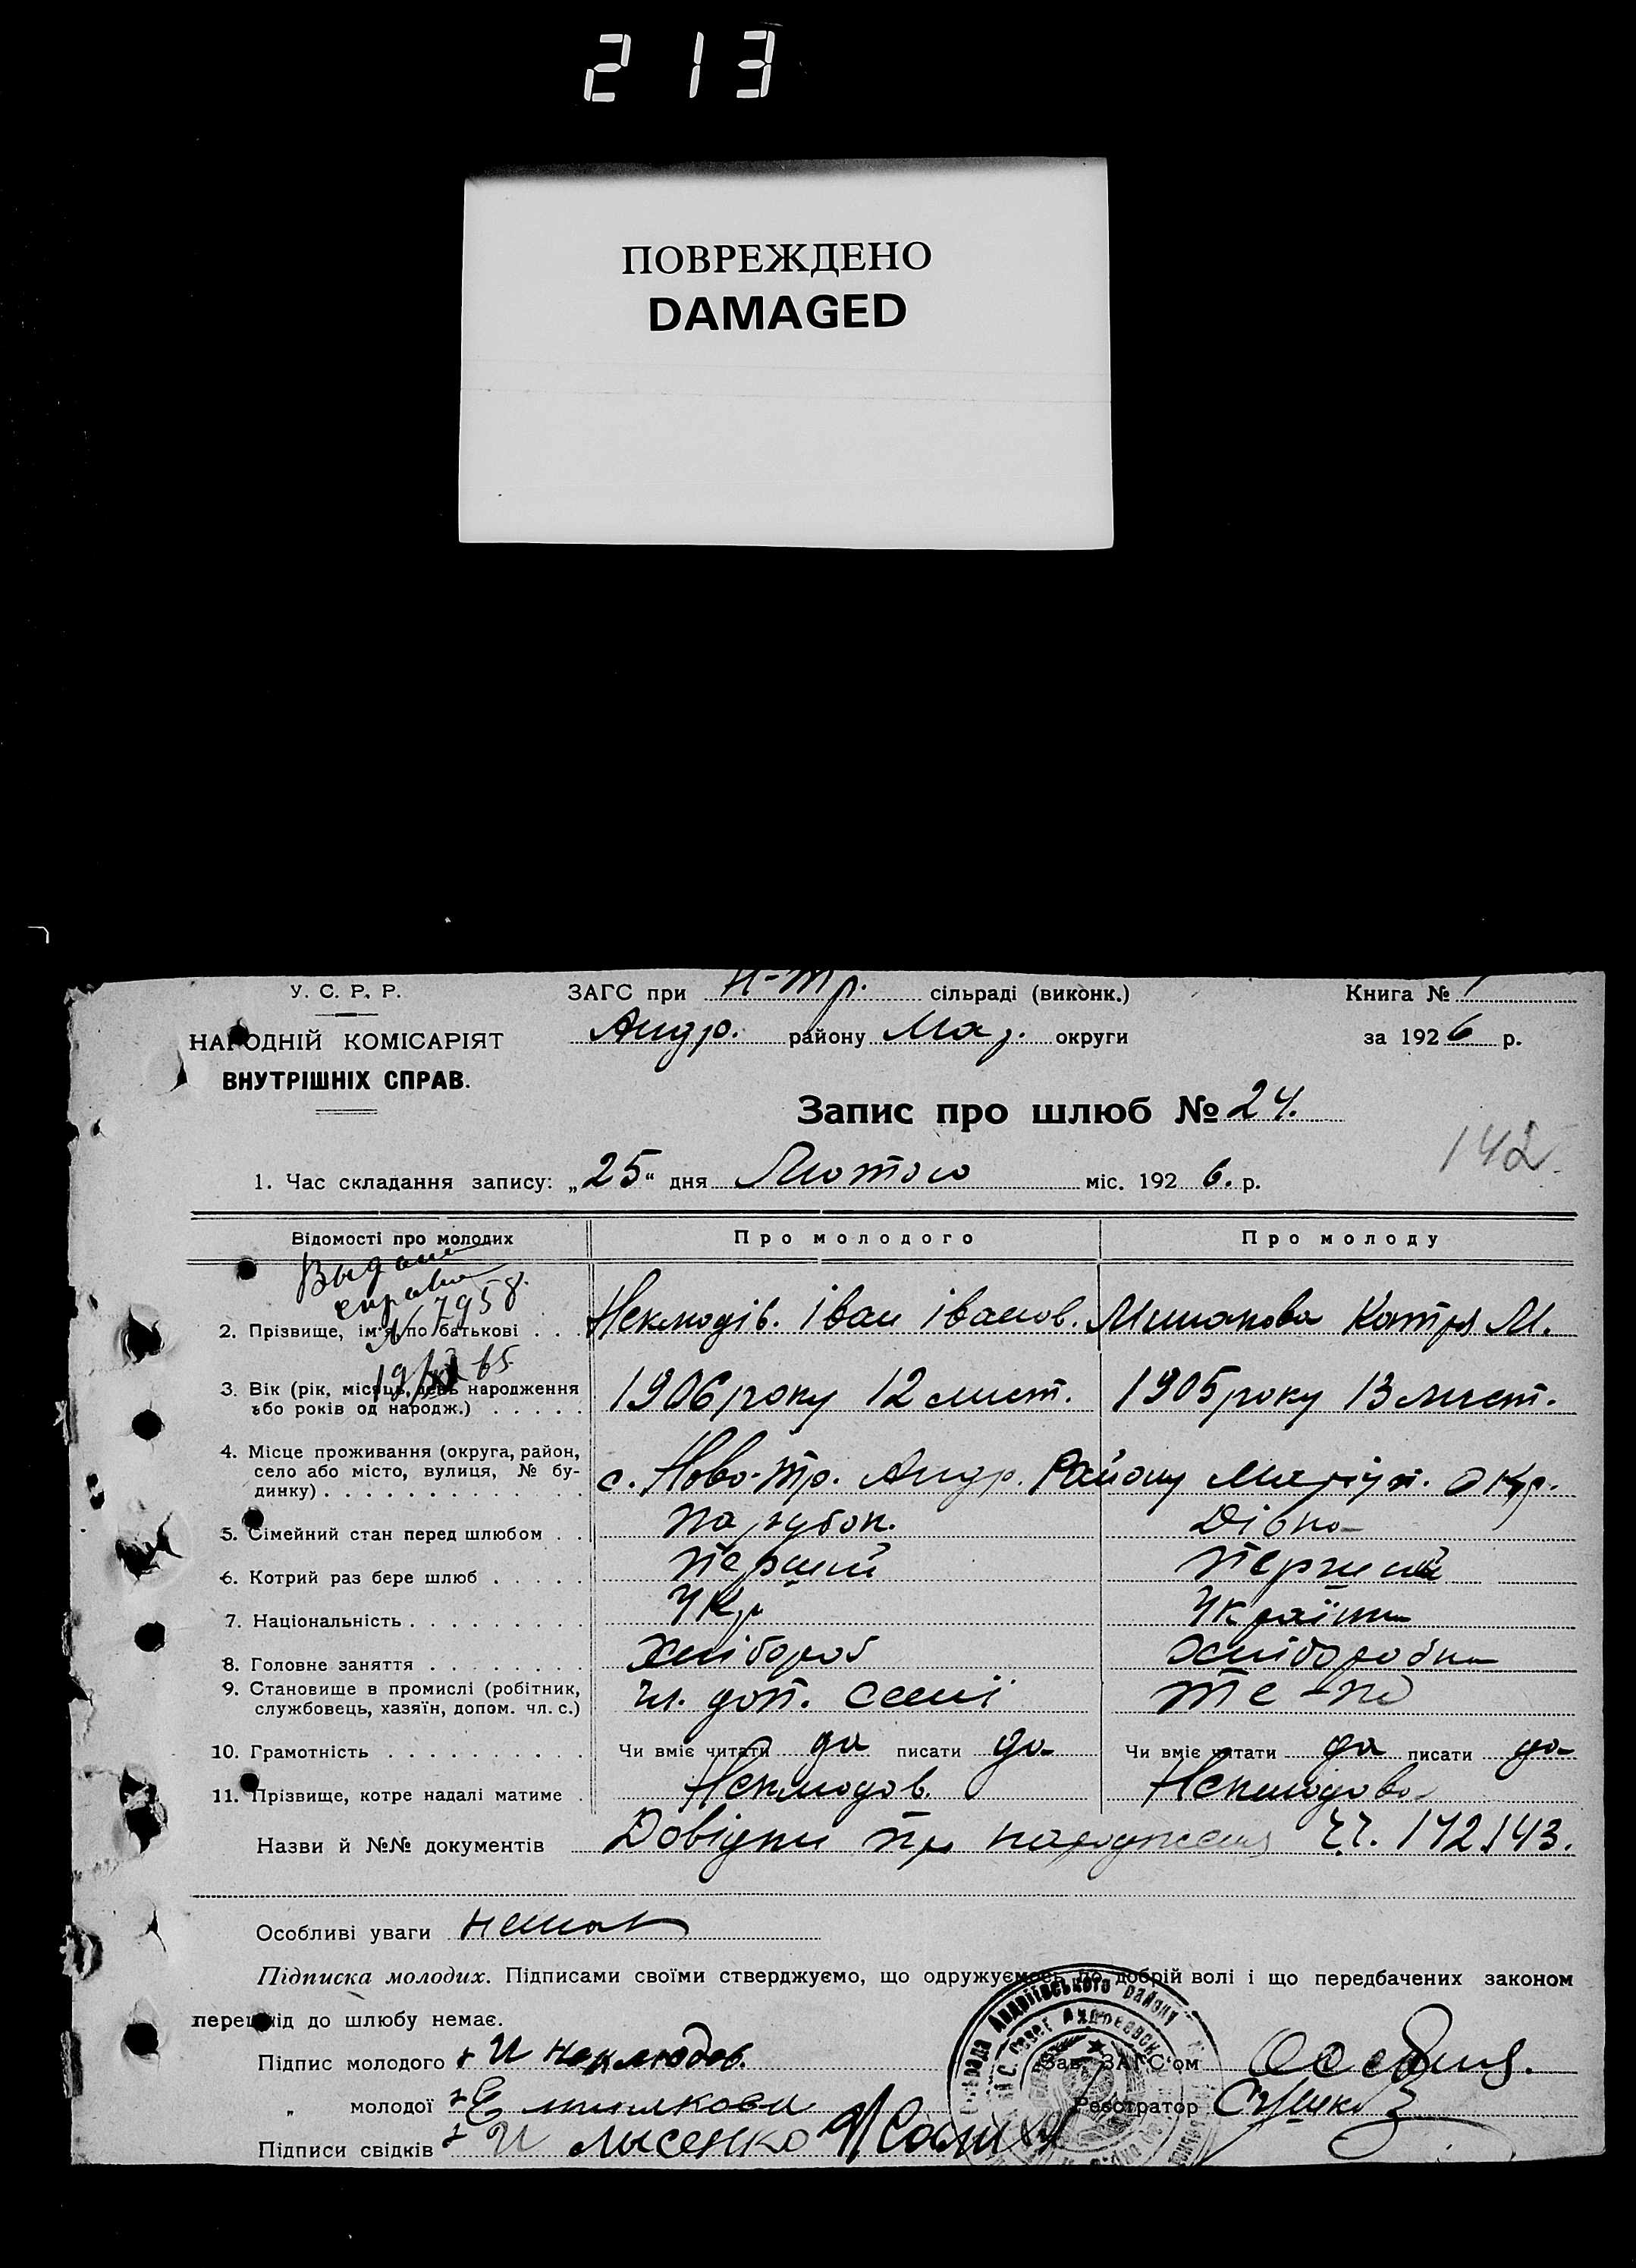 213
ПОВРЕЖДЕНО
DAMAGED
У. С. Р. Р. ЗАГС при Н-тр. сільраді (виконк.) Книга № 1
НАРОДНІЙ КОМІСАРІЯТ Андр. району Мар. округи за 1926 р.
ВНУТРІШНІХ СПРАВ.
Запис про шлюб № 24.
142
1. Час складання запису: „25“ дня Лютого міс. 1926. р.
Відомості про молодих Про молодого Про молоду
справка
2. Прізвище, ім'я по батькові . . . Неклюдів. Іван Іванов. Катря М.
3. Вік (рік, місяць, день народження 1906 року 12 лист. 1905 року 13 лист.
або років од народж.) . . . . .
4. Місце проживання (округа, район,
село або місто, вулиця, № бу- с. Ново-тр. Андр. Району Маріуп. окр.
динку) . . . . . . . . . . . . .
5. Сімейний стан перед шлюбом . . парубок. Дівка
6. Котрий раз бере шлюб . . . . . перший перший
7. Національність . . . . . . . . . Укр
8. Головне заняття . . . . . . . . хлібороб
9. Становище в промислі (робітник, чл. доп. семі те-ж
службовець, хазяїн, допом. чл. с.)
10. Грамотність . . . . . . . . . . Чи вміє читати да писати да Чи вміє читати да писати да
11. Прізвище, котре надалі матиме . Неклюдов. Неклюдова
Назви й №№ документів Довідки про народження ч.ч. 142 143.
Особливі уваги немає
Підписка молодих. Підписами своїми стверджуємо, що одружуємось по добрій волі і що передбачених законом
перешкід до шлюбу немає.
Підпис молодого И Неклюдов. Зав. ЗАГС'ом
„ молодої Е Реєстратор
Підписи свідків И лысенко
Андріївського району